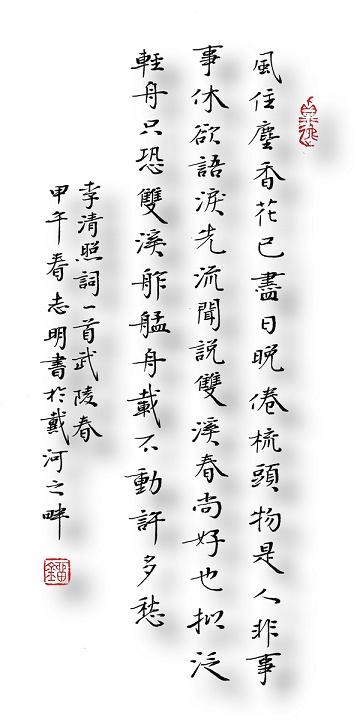 風住塵香花已盡日晚倦梳頭物是人非事
事休欲語淚先流聞說雙溪春尚好也拟泛
輕舟只恐雙溪舴艋舟載不動許多愁
李清照詞一首武陵春
甲午春志明書於戴河之畔